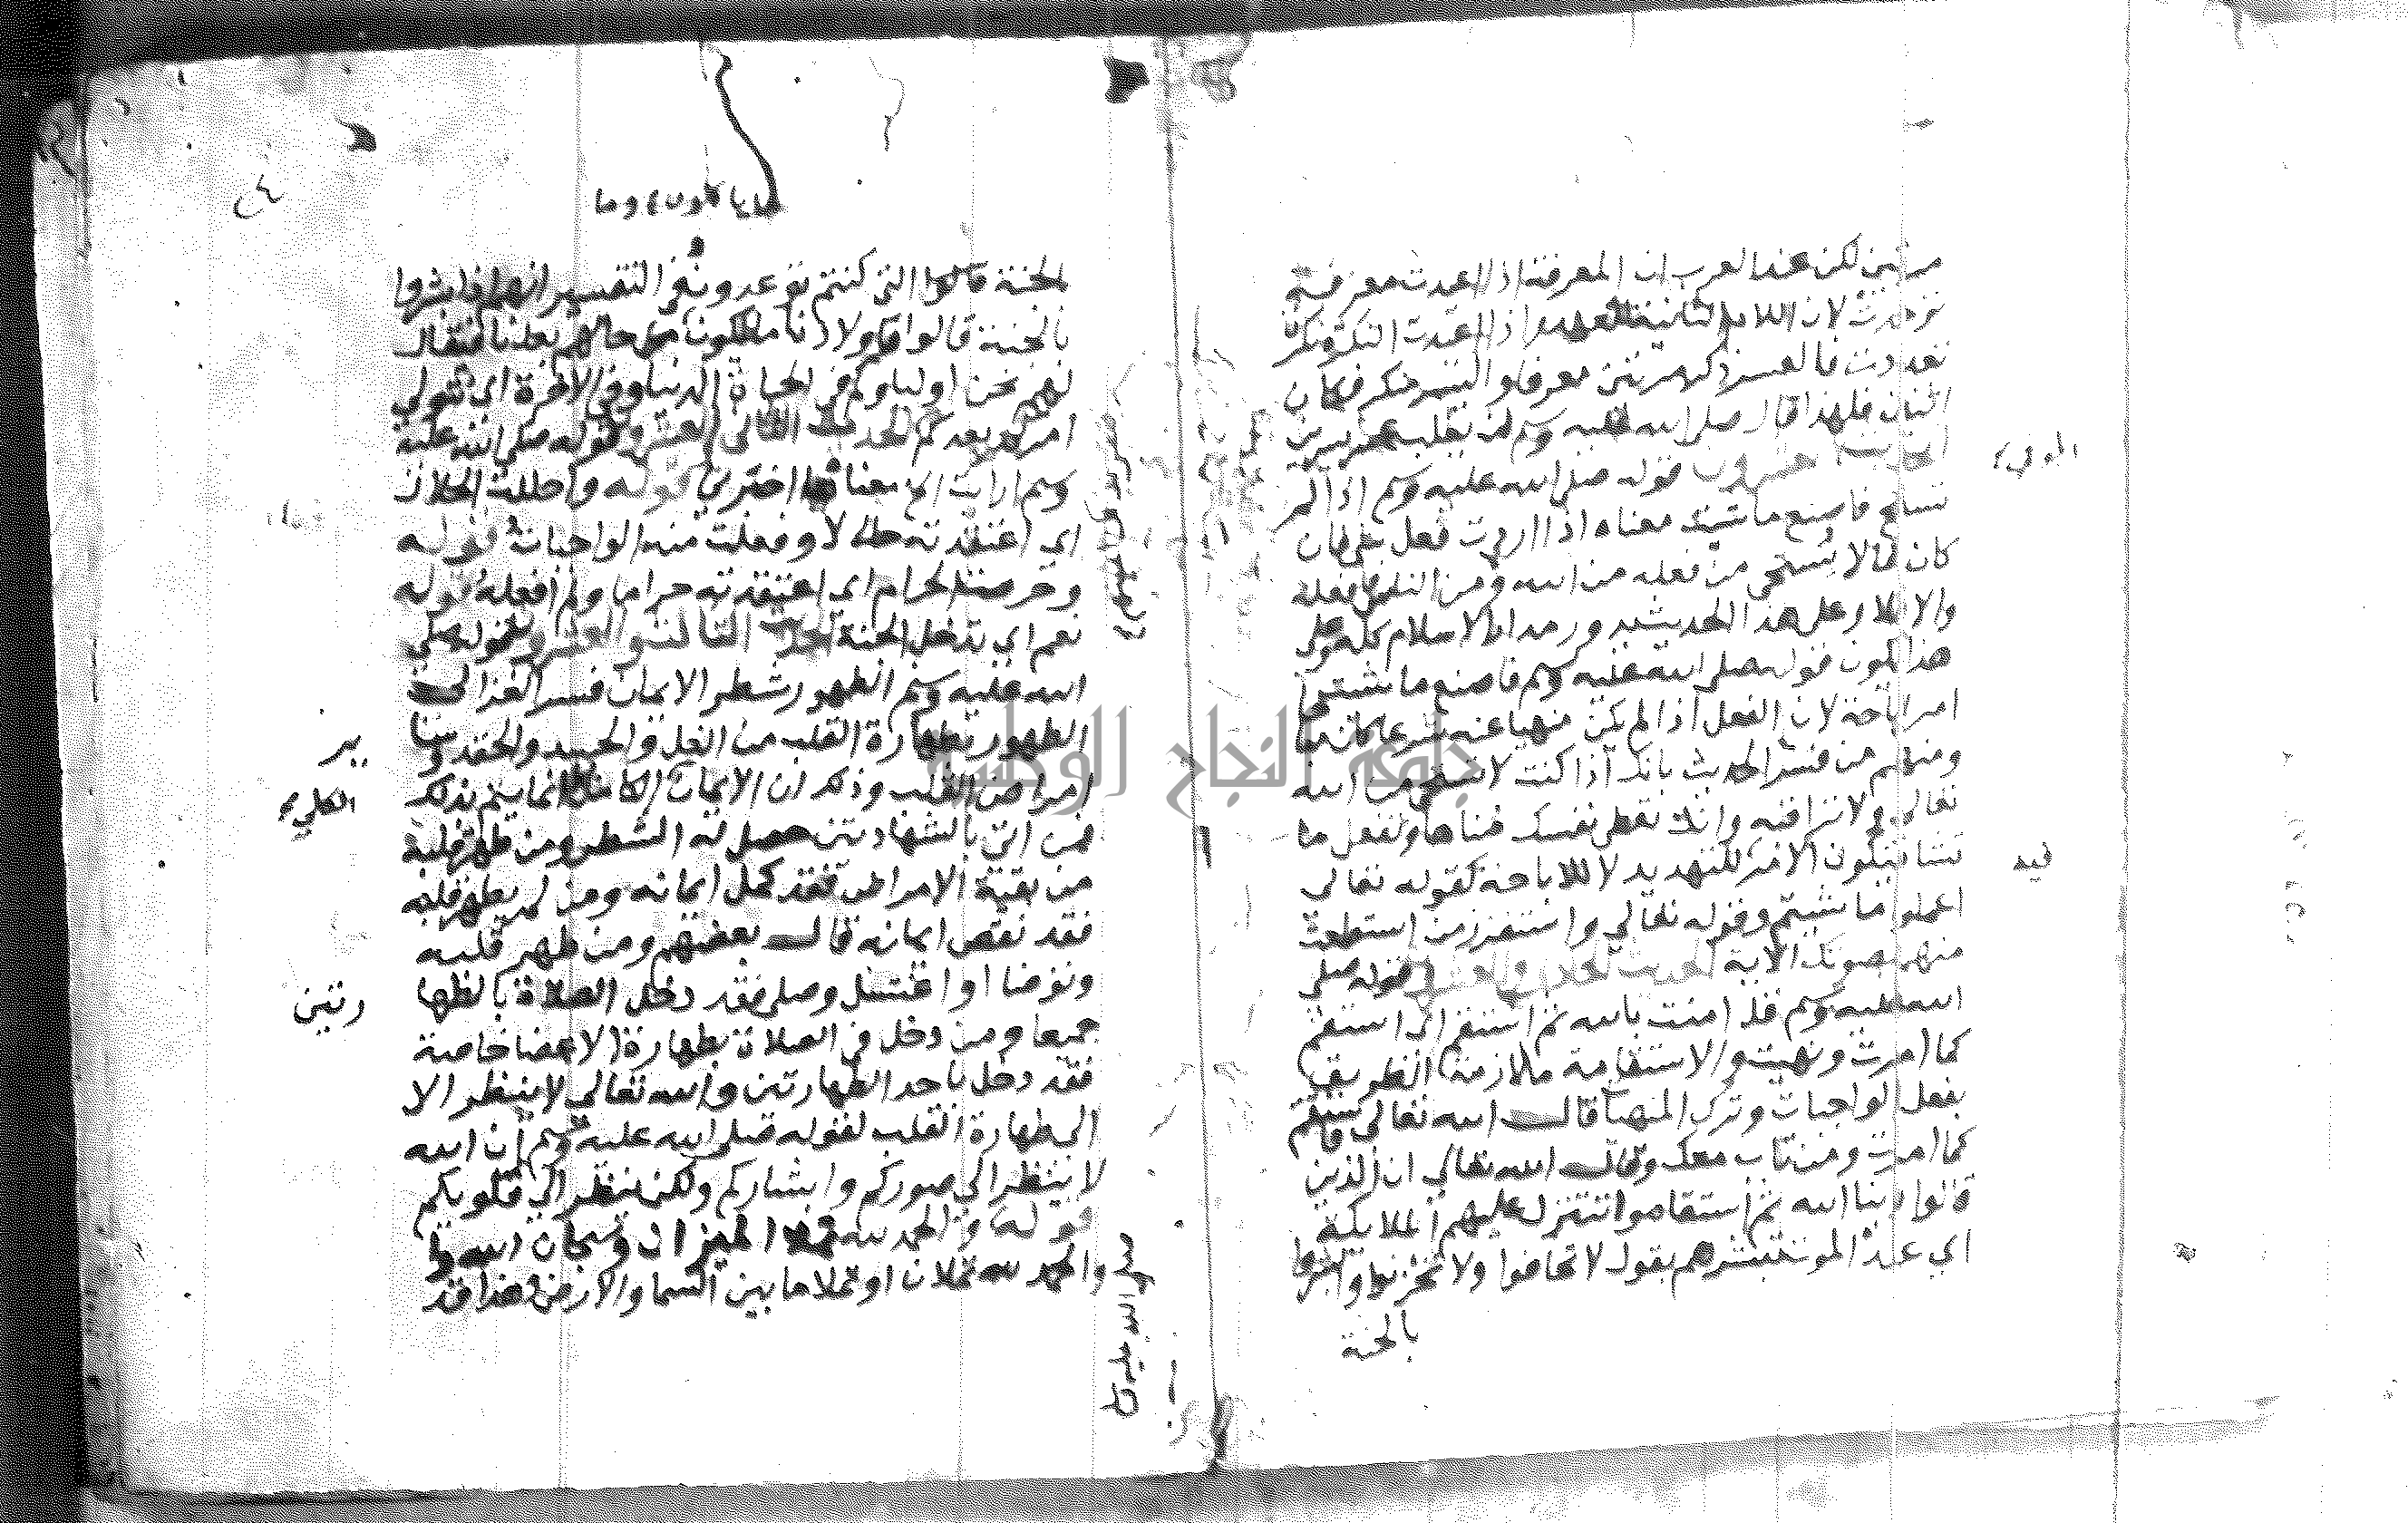 مرتين لكن عند العرب ان المعرفة اذا اعيدت معرفة
توحدت لان اللام الثانية للعهد واذا اعيدت النكرة نكرة
تعددت فالعسر ذكر مرتين معرفا واليسر منكر فكان
اثنان فلهذا قال صلى الله عليه وسلم لن يغلب عسر يسرين
الحديث العشرون قوله صلى الله عليه وسلم اذا لم
تستح فاصنع ما شيت معناه اذا اردت فعل شي فان
كان مما لا تستحي من فعله من الله ومن الناس فافعله
والا فلا وعلى هذا الحديث يدور مدار الاسلام كله وعلى
هذا يكون قوله صلى الله عليه وسلم فاصنع ما شيت
امر اباحة لان الفعل اذا لم يكن منهيا عنه شرعا كان مباحا
ومنهم من فسر الحديث بانك اذا كنت لا تستحي من الله
تعالى ولا تراقبه وانك تعطى نفسك مناها وتفعل ما
تشا فيكون الامر للتهديد لا للاباحة كقوله تعالى
اعملوا ما شيتم وقوله تعالي واستفزز من استطعت
منهم بصوتك الاية الحديث الحادي والعشرون قوله صلى
الله عليه وسلم قل امنت بالله ثم استقم اي استقم
كما امرت ونهيت والاستقامة ملازمة الطريق
بفعل الواجبات وترك المنهيات قال الله تعالى فاستقم
كما امرت ومن تاب معك وقال الله تعالى ان الذين
قالوا ربنا الله ثم استقاموا تتنزل عليهم الملايكة
اي عند الموت تبشرهم بقول لا تخافوا ولا تحزنوا وابشروا
بالجنة
فيه
بالجنة قالوا التي كنتم توعدون وفي التفسير انهم اذا بشروا
بالجنة قالوا واولادنا ما ياكلون وما حالهم بعدنا فيقال
لهم نحن اولياوكم في الحياة الدنيا وفي الاخرة اي نتولى
امرهم بعدكم الحديث الثاني والعشرون قوله صلى الله عليه
وسلم ارايت الخ معناه اخبرني قوله واحللت الحلال
اي اعتقدته حلالا وفعلت منه الواجبات قوله
وحرمت الحرام اي اعتقدته حراما ولم افعله قوله
نعم اي تدخل الجنة الحديث الثالث والعشرون قوله صلى
الله عليه وسلم الطهور شطر الايمان فسر الغزالي
الطهور بطهارة القلب من الغل والحسد والحقد وسا
ير
امراض القلب وذلك ان الايمان الكامل انما يتم بذلك
فمن اتى بالشهادتين حصل له الشطر ومن طهر قلبه
من بقية الامراض فقد كمل ايمانه ومن لم يطهر قلبه
فقد نقص ايمانه قال بعضهم ومن طهر قلبه
وتوضا او اغتسل وصلى فقد دخل الصلاة بالطها
رتين
جميعا ومن دخل في الصلاة بطهارة الاعضا خاصة
فقد دخل باحد الطهارتين والله تعالي لا ينظر الا
الى طهارة القلب لقوله صلى الله عليه وسلم ان الله
لا ينظر الى صوركم وابشاركم ولكن ينظر الى قلوبكم
قوله والحمد لله تملا الميزان وسبحان الله
والحمد لله تملان او تملا ما بين السما والارض وهذا قد
جامعة النجاح الوطنية